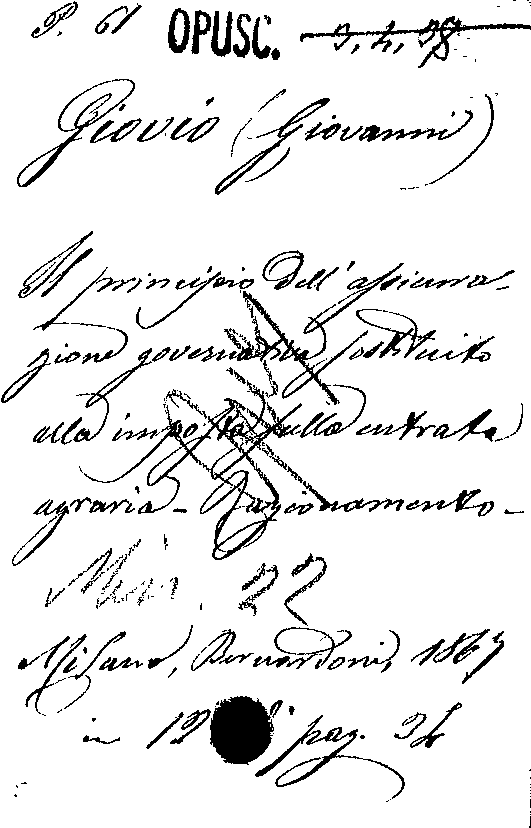 P. 61 OPUSC. 3, 4, 38
Giovio (Giovanni)
Il principio dell'assicura-
zione governativa sostituito
alla imposta sulla entrata
agraria - Ragionamento -
22
Milano, Bernardoni, 1867
in 12 di pag. 34